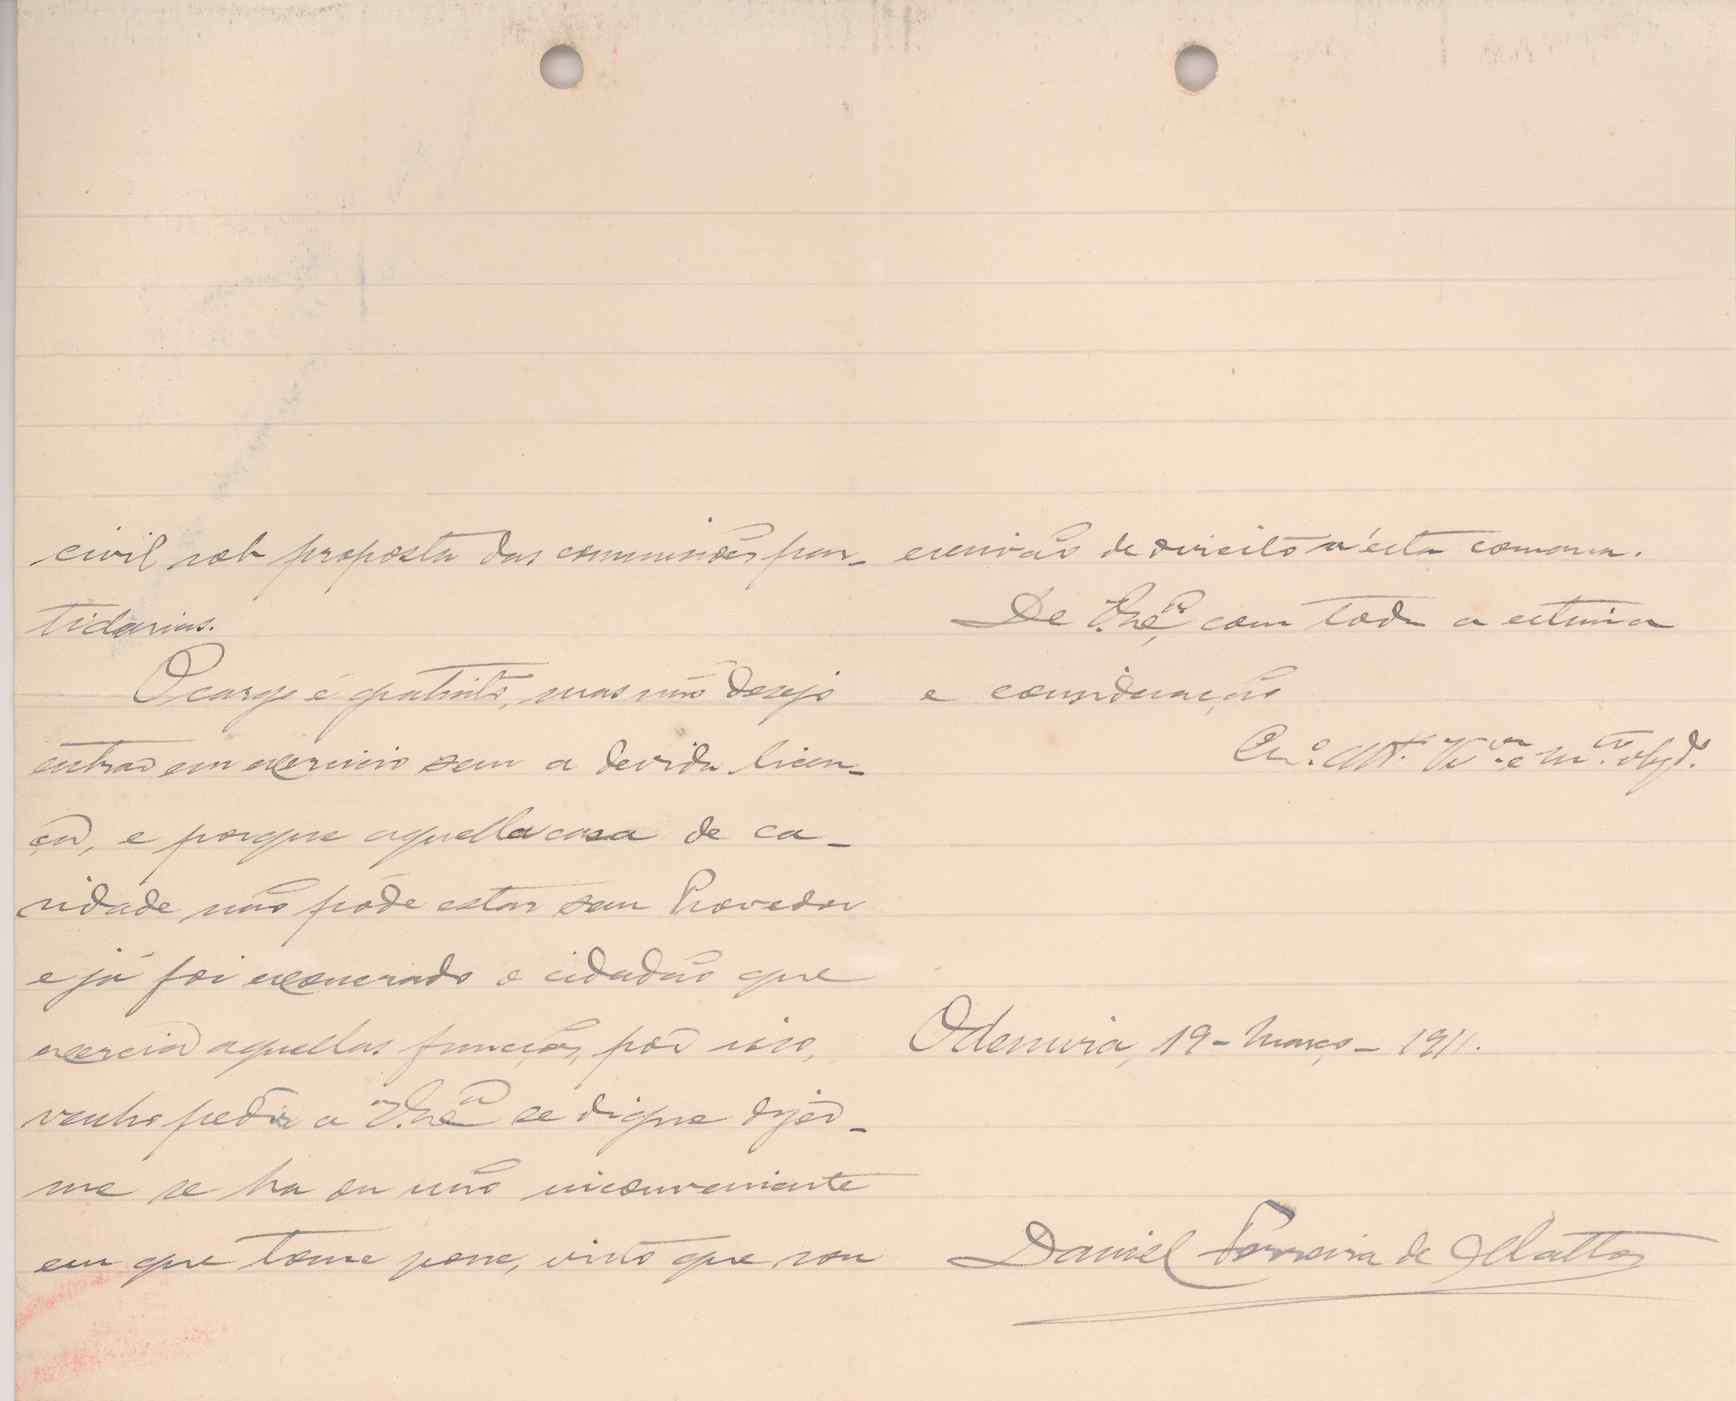 civil sob proposta das commissões par-
tidarias.
O cargo é gratuito, mas não desejo
entrar em exercicio sem a devida licen-
ça, e porque aquella casa de ca-
ridade não póde estar sem Provedor
e já foi exonerado o cidadão que
exercia aquellas funcções, por isso,
venho pedir a V. Exª se digne dizer-
me se ha ou não inconveniente
em que tome posse, visto que sou
escrivão de direito n'esta comarca.
De V. Exª, com toda a estima
e consideração
Crº. Attº. Vor. e mtº. obgdº.
Odemira, 19 - Março - 1911.
Daniel Ferreira de Mattos